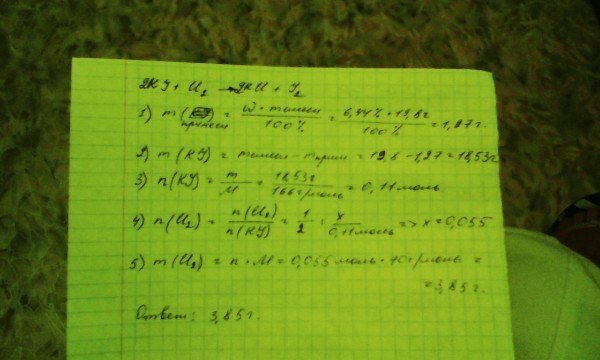 2KJ + Cl₂ → 2KCl + J₂
1) m(примеси) = ω · mсмеси / 100% = 6,44% · 19,8г / 100% = 1,27г.
2) m(KJ) = mсмеси − mприм = 19,8 − 1,27 = 18,53г
3) n(KJ) = m / M = 18,53г / 166г/моль = 0,11 моль
4) n(Cl₂) = n(Cl₂) / n(KJ) = 1 / 2 = x / 0,11 моль => x = 0,055
5) m(Cl₂) = n · M = 0,055 моль · 70г/моль =
= 3,85г.
Ответ: 3,85г.